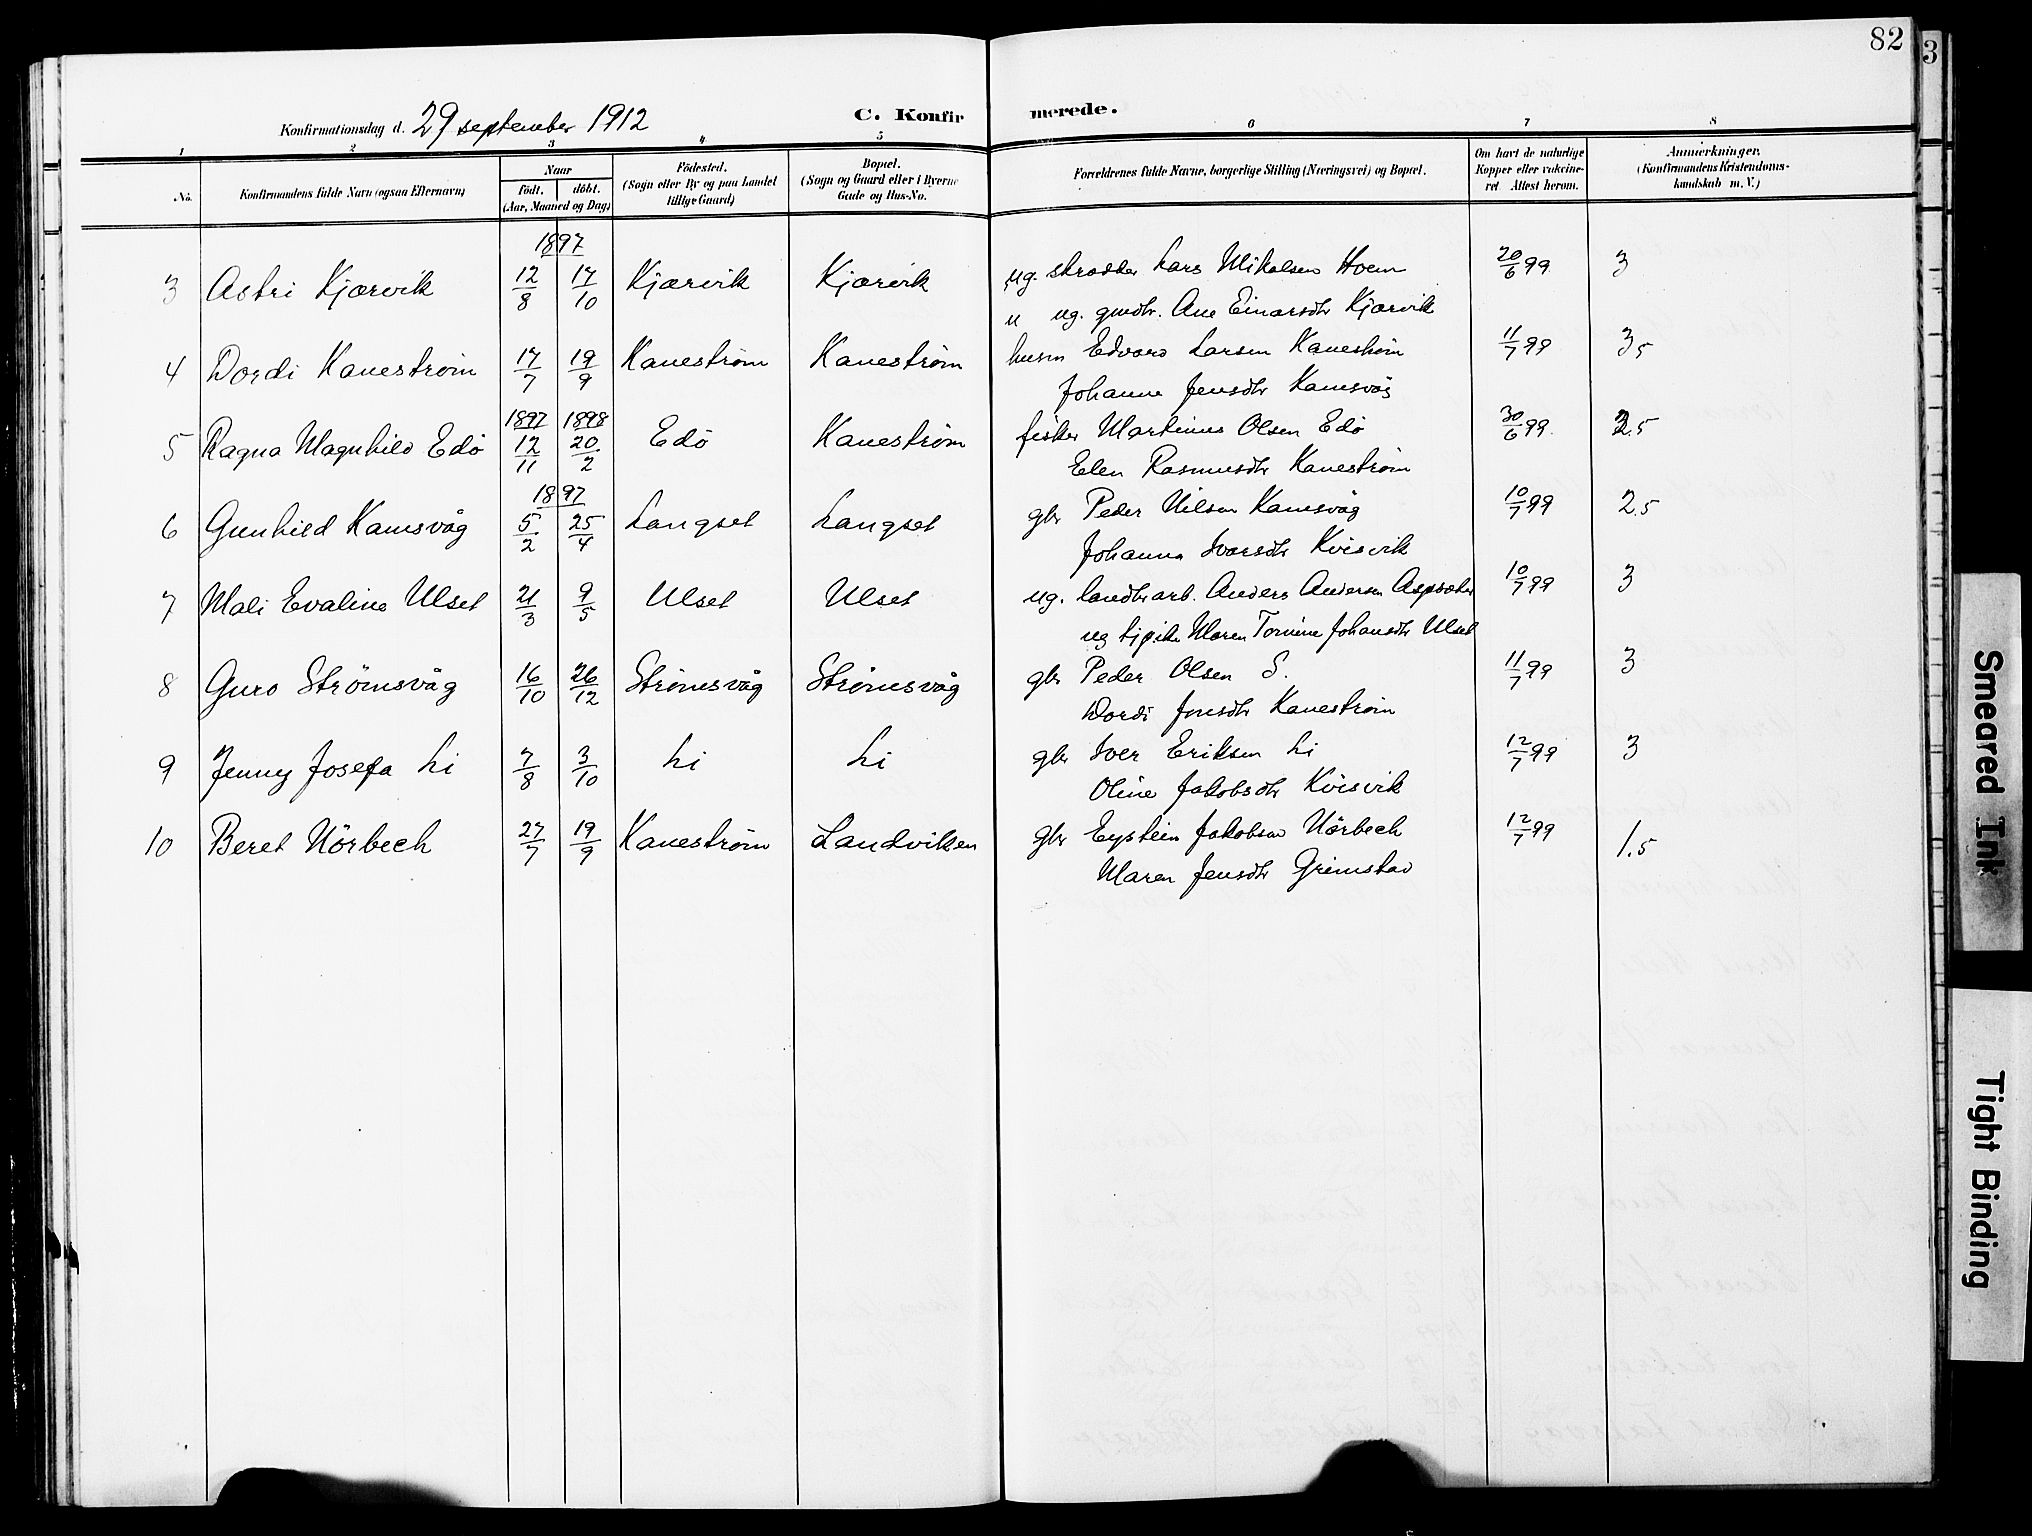 82
3
Konfirmationsdag d. 29 september 1912 C. Konfirmerede.
1 2 3 4 5 6 7 8
No. Konfirmandens fulde Navn (ogsaa Efternavn) Naar födt. döbt. (Aar, Maaned og Dag) Födested. (Sogn eller By og paa Landet tillige Gaard) Bopæl. (Sogn og Gaard eller i Byerne Gade og Hus-No. Forældrenes fulde Navne, borgerlige Stilling (Næringsvei) og Bopæl. Om havt de naturlige Kopper eller vakcineret Attest herom. Anmærkninger. (Konfirmandens Kristendomskundskab m. V.)
1897
3 Astri Kjærvik 12/8 17/10 Kjærvik Kjærvik ug. skrædder Lars Mikalsen Hoem 20/6 99 3
ug. gmdtr. Ane Einarsdtr Kjærvik
4 Dordi Kanestrøm 17/7 19/9 Kanestrøm Kanestrøm husm Edvard Larsen Kanestrøm 11/7 99 3,5
Johanna Jensdtr Kamsvåg
1897 1898
5 Ragna Magnhild Edö 12/11 20/2 Edö Kanestrøm fisker Martinus Olsen Edö 30/6 99 2.5
Elen Rasmusdtr Kanestrøm
1897
6 Gunhild Kamsvåg 5/2 25/4 Langset Langset gbr Peder Nilsen Kamsvåg 10/7 99 2.5
Johanna Ivarsdtr Kvisvik
7 Mali Evaline Ulset 21/3 9/5 Ulset Ulset ug. landbr arb. Anders Andersen Aspsæter 10/7 99 3
ug tj pike Maren Tomine Johansdtr Ulset
8 Guro Strömsvåg 16/10 26/12 Strömsvåg Strömsvåg gbr Peder Olsen S. 11/7 99 3
Dordi Jonsdtr Kanestrøm
9 Jenny Josefa Li 7/8 3/10 Li Li gbr Iver Eriksen Li 12/7 99 3
Oline Jakobsdtr Kvisvik
10 Beret Nörbech 27/7 19/9 Kanestrøm Landviksen gbr Eystein Jakobsen Nörbech 12/7 99 1.5
Maren Jensdtr Grimstad
Smeared Ink
Tight Binding